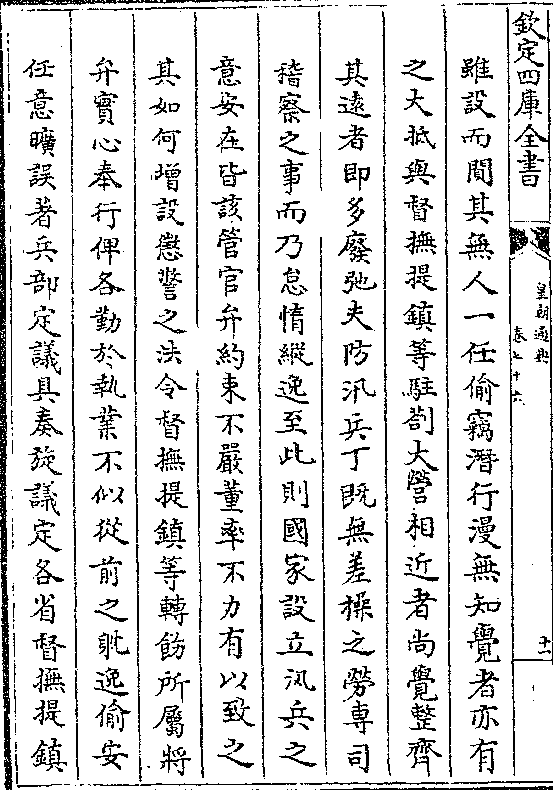 欽定四庫全書
皇朝通典
卷七十六
十一
雖設而閴其無人一任偷竊潛行漫無知覺者亦有
之大抵與督撫提鎮等駐劄大營相近者尚覺整齊
其遠者即多廢弛夫防汛兵丁既無差操之勞專司
稽察之事而乃怠惰縱逸至此則國家設立汛兵之
意安在皆該管官弁約束不嚴董率不力有以致之
其如何增設懲警之法令督撫提鎮等轉飭所屬將
弁實心奉行俾各勤於執業不似從前之躭逸偷安
任意曠誤著兵部定議具奏旋議定各省督撫提鎮